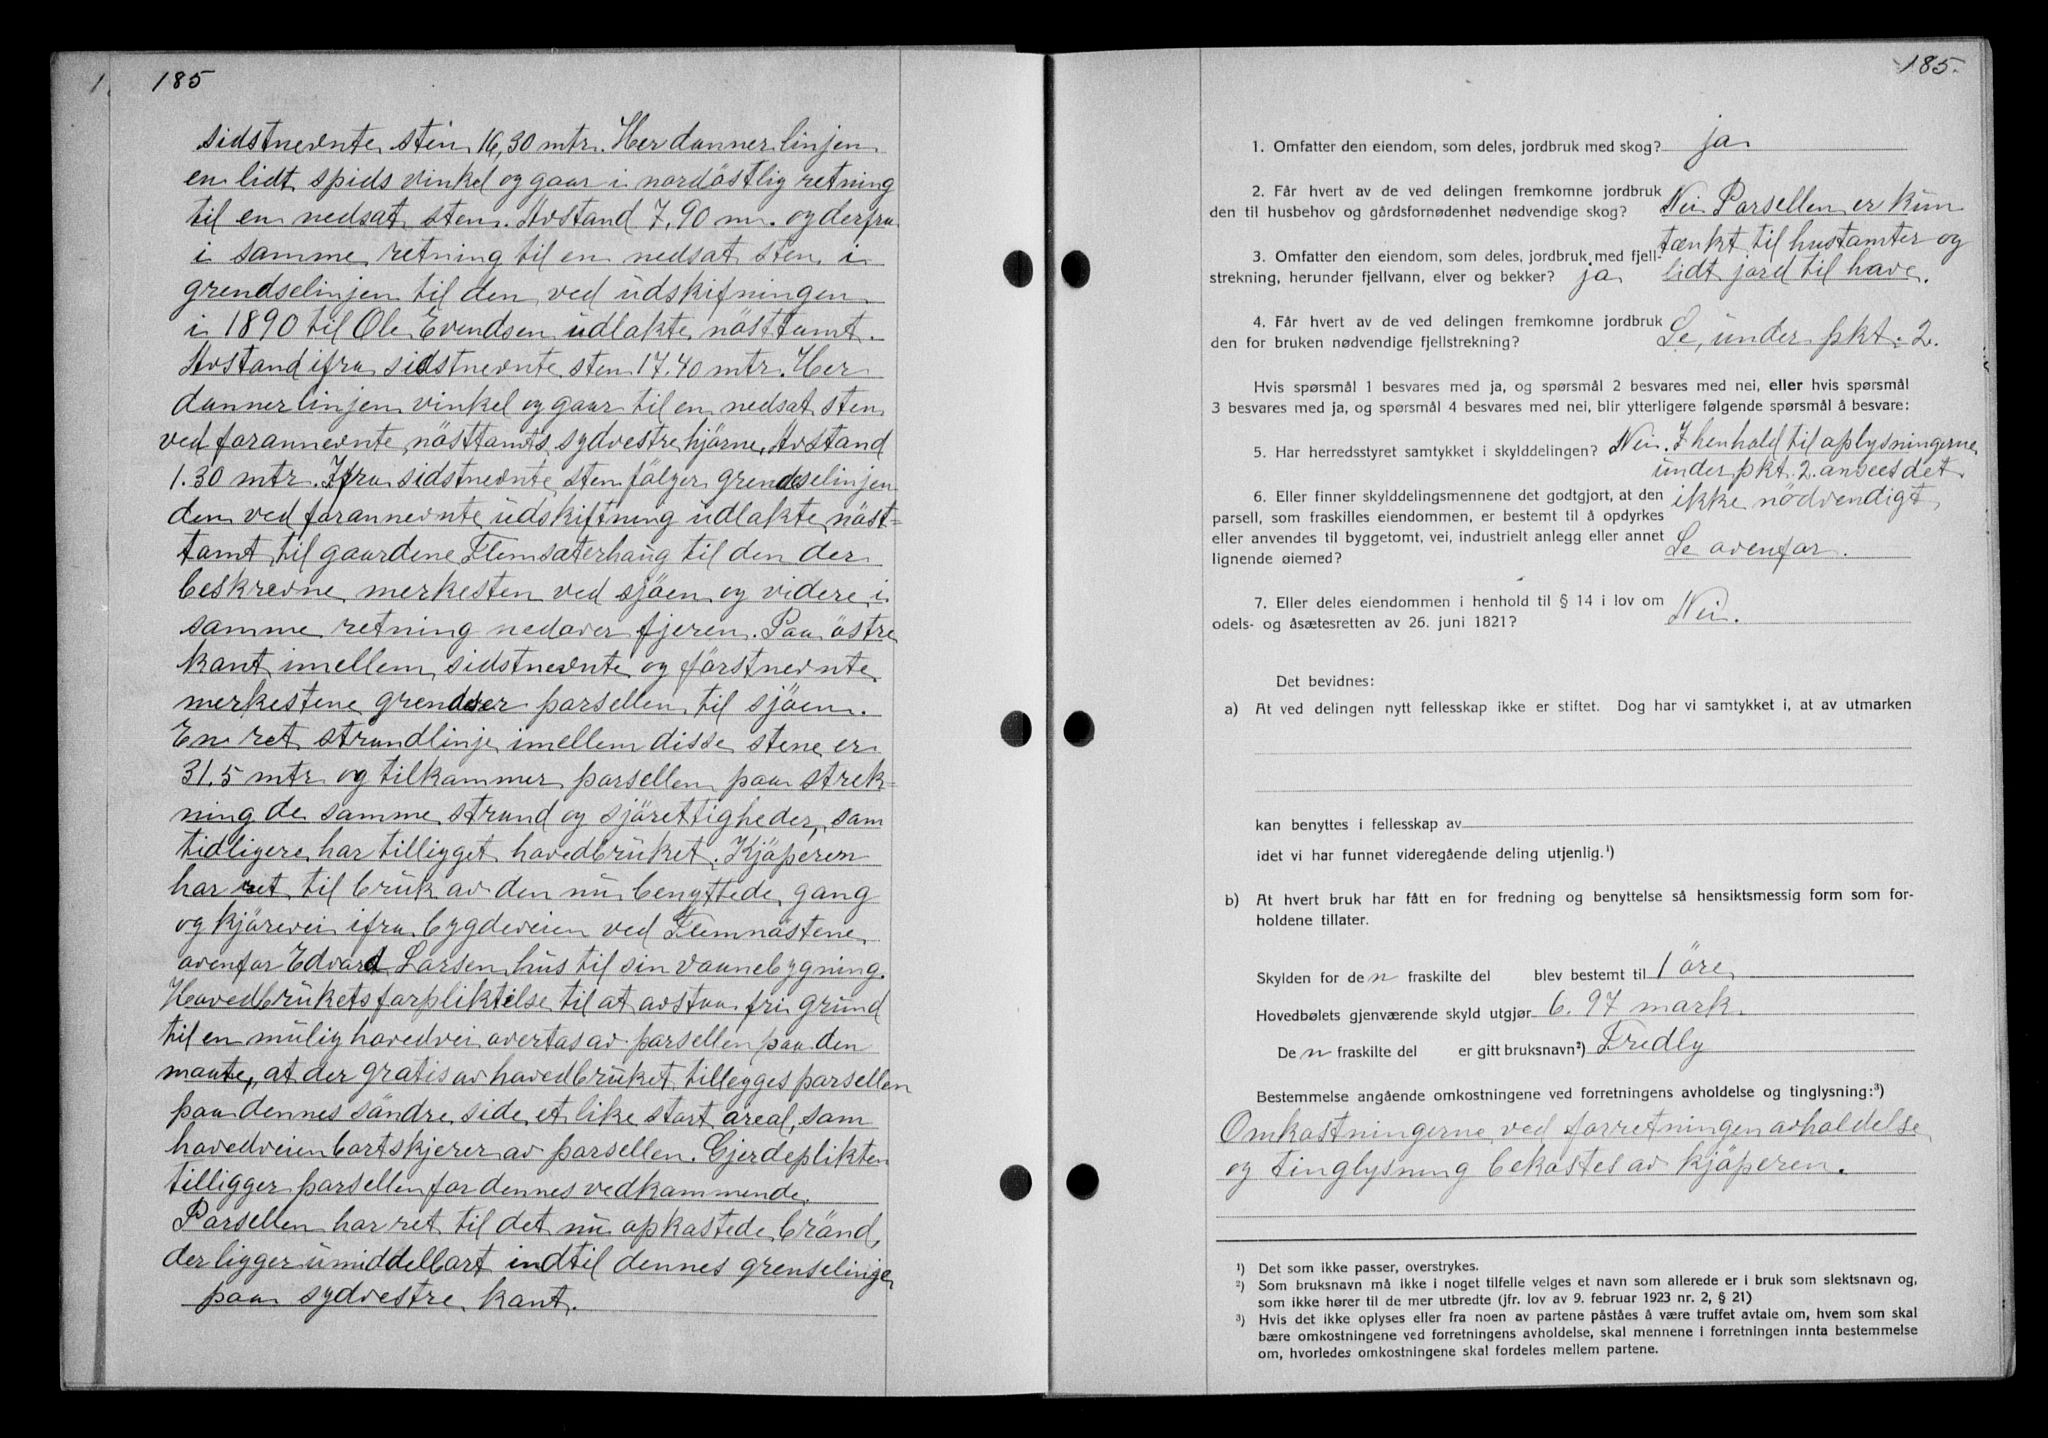 185
sidstnevnte sten 16,30 mtr. Her danner linjen
en lidt spids vinkel og gaar i nordöstlig retning
til en nedsat sten. Avstand 7,90 m. og derfra
i samme retning til en nedsat sten i
grendselinjen til den ved udskifningen
i 1890 til Ole Evendsen udlakte nösttamt.
Avstand ifra sidstnevnte sten 17.40 mtr. Her
danner linjen vinkel og gaar til en nedsat sten
ved forannevnte nösttamts sydvestre hjörne, Avstand
1.30 mtr. Ifra sidstnevnte sten fölger grendselinjen
den ved forannevnte udskiftning udlakte nöst=
tamt til gaardene Flemsæterhaug til den der
beskrevne merkesten ved sjöen og videre i
samme retning nedover fjeren. Paa östre
kant imellem sidstnevnte og förstnevnte
merkestene grendser parsellen til sjöen.
En ret strandlinje imellem disse stene er
31.5 mtr og tilkommer parsellen paa strek-
ning de samme strand og sjörettigheder, som
tidligere har tilligget hovedbruket. Kjöperen
har ret til bruk av den nu benyttede gang
og kjörevei ifra bygdeveien ved Flemnöstene
ovenfor Edvard Larsen hus til sin vaanebygning.
Hovedbrukets forpliktelse til at avstaa fri grund
til en mulig hovedvei overtas av parsellen paa den
maate, at der gratis av hovedbruket tillegges parsellen
paa dennes söndre side et like stort areal, som
hovedveien bortskjerer av parsellen. Gjerdeplikten
tilligger parsellen for dennes vedkommende.
Parsellen har ret til det nu opkastede brönd,
der ligger umiddelbart indtil dennes grenselinje
paa sydvestre kant.
185.
1. Omfatter den eiendom, som deles, jordbruk med skog? ja
2. Får hvert av de ved delingen fremkomne jordbruk
den til husbehov og gårdsfornødenhet nødvendige skog? Nei Parsellen er kun
tænkt til hustamter og
3. Omfatter den eiendom, som deles, jordbruk med fjell-
strekning, herunder fjellvann, elver og bekker? ja lidt jord til have.
4. Får hvert av de ved delingen fremkomne jordbruk
den for bruken nødvendige fjellstrekning? Se under pkt. 2.
Hvis spørsmål 1 besvares med ja, og spørsmål 2 besvares med nei, eller hvis spørsmål
3 besvares med ja, og spørsmål 4 besvares med nei, blir ytterligere følgende spørsmål å besvare:
5. Har herredsstyret samtykket i skylddelingen? Nei. I henhold til oplysningerne
under pkt. 2. ansees det
6. Eller finner skylddelingsmennene det godtgjort, at den ikke nödvendigt
parsell, som fraskilles eiendommen, er bestemt til å opdyrkes
eller anvendes til byggetomt, vei, industrielt anlegg eller annet
lignende øiemed? Se ovenfor.
7. Eller deles eiendommen i henhold til § 14 i lov om
odels- og åsætesretten av 26. juni 1821? Nei.
Det bevidnes:
a) At ved delingen nytt fellesskap ikke er stiftet. Dog har vi samtykket i, at av utmarken
kan benyttes i fellesskap av
idet vi har funnet videregående deling utjenlig.¹)
b) At hvert bruk har fått en for fredning og benyttelse så hensiktsmessig form som for-
holdene tillater.
Skylden for den fraskilte del blev bestemt til 1 öre
Hovedbølets gjenværende skyld utgjør 6.97 mark
Den fraskilte del er gitt bruksnavn²) Fredly
Bestemmelse angående omkostningene ved forretningens avholdelse og tinglysning:³)
Omkostningerne ved forretningen avholdelse
og tinglysning bekostes av kjöperen.
¹) Det som ikke passer, overstrykes.
²) Som bruksnavn må ikke i noget tilfelle velges et navn som allerede er i bruk som slektsnavn og,
som ikke hører til de mer utbredte (jfr. lov av 9. februar 1923 nr. 2, § 21)
³) Hvis det ikke oplyses eller fra noen av partene påståes å være truffet avtale om, hvem som skal
bære omkostningene ved forretningens avholdelse, skal mennene i forretningen innta bestemmelse
om, hvorledes omkostningene skal fordeles mellem partene.